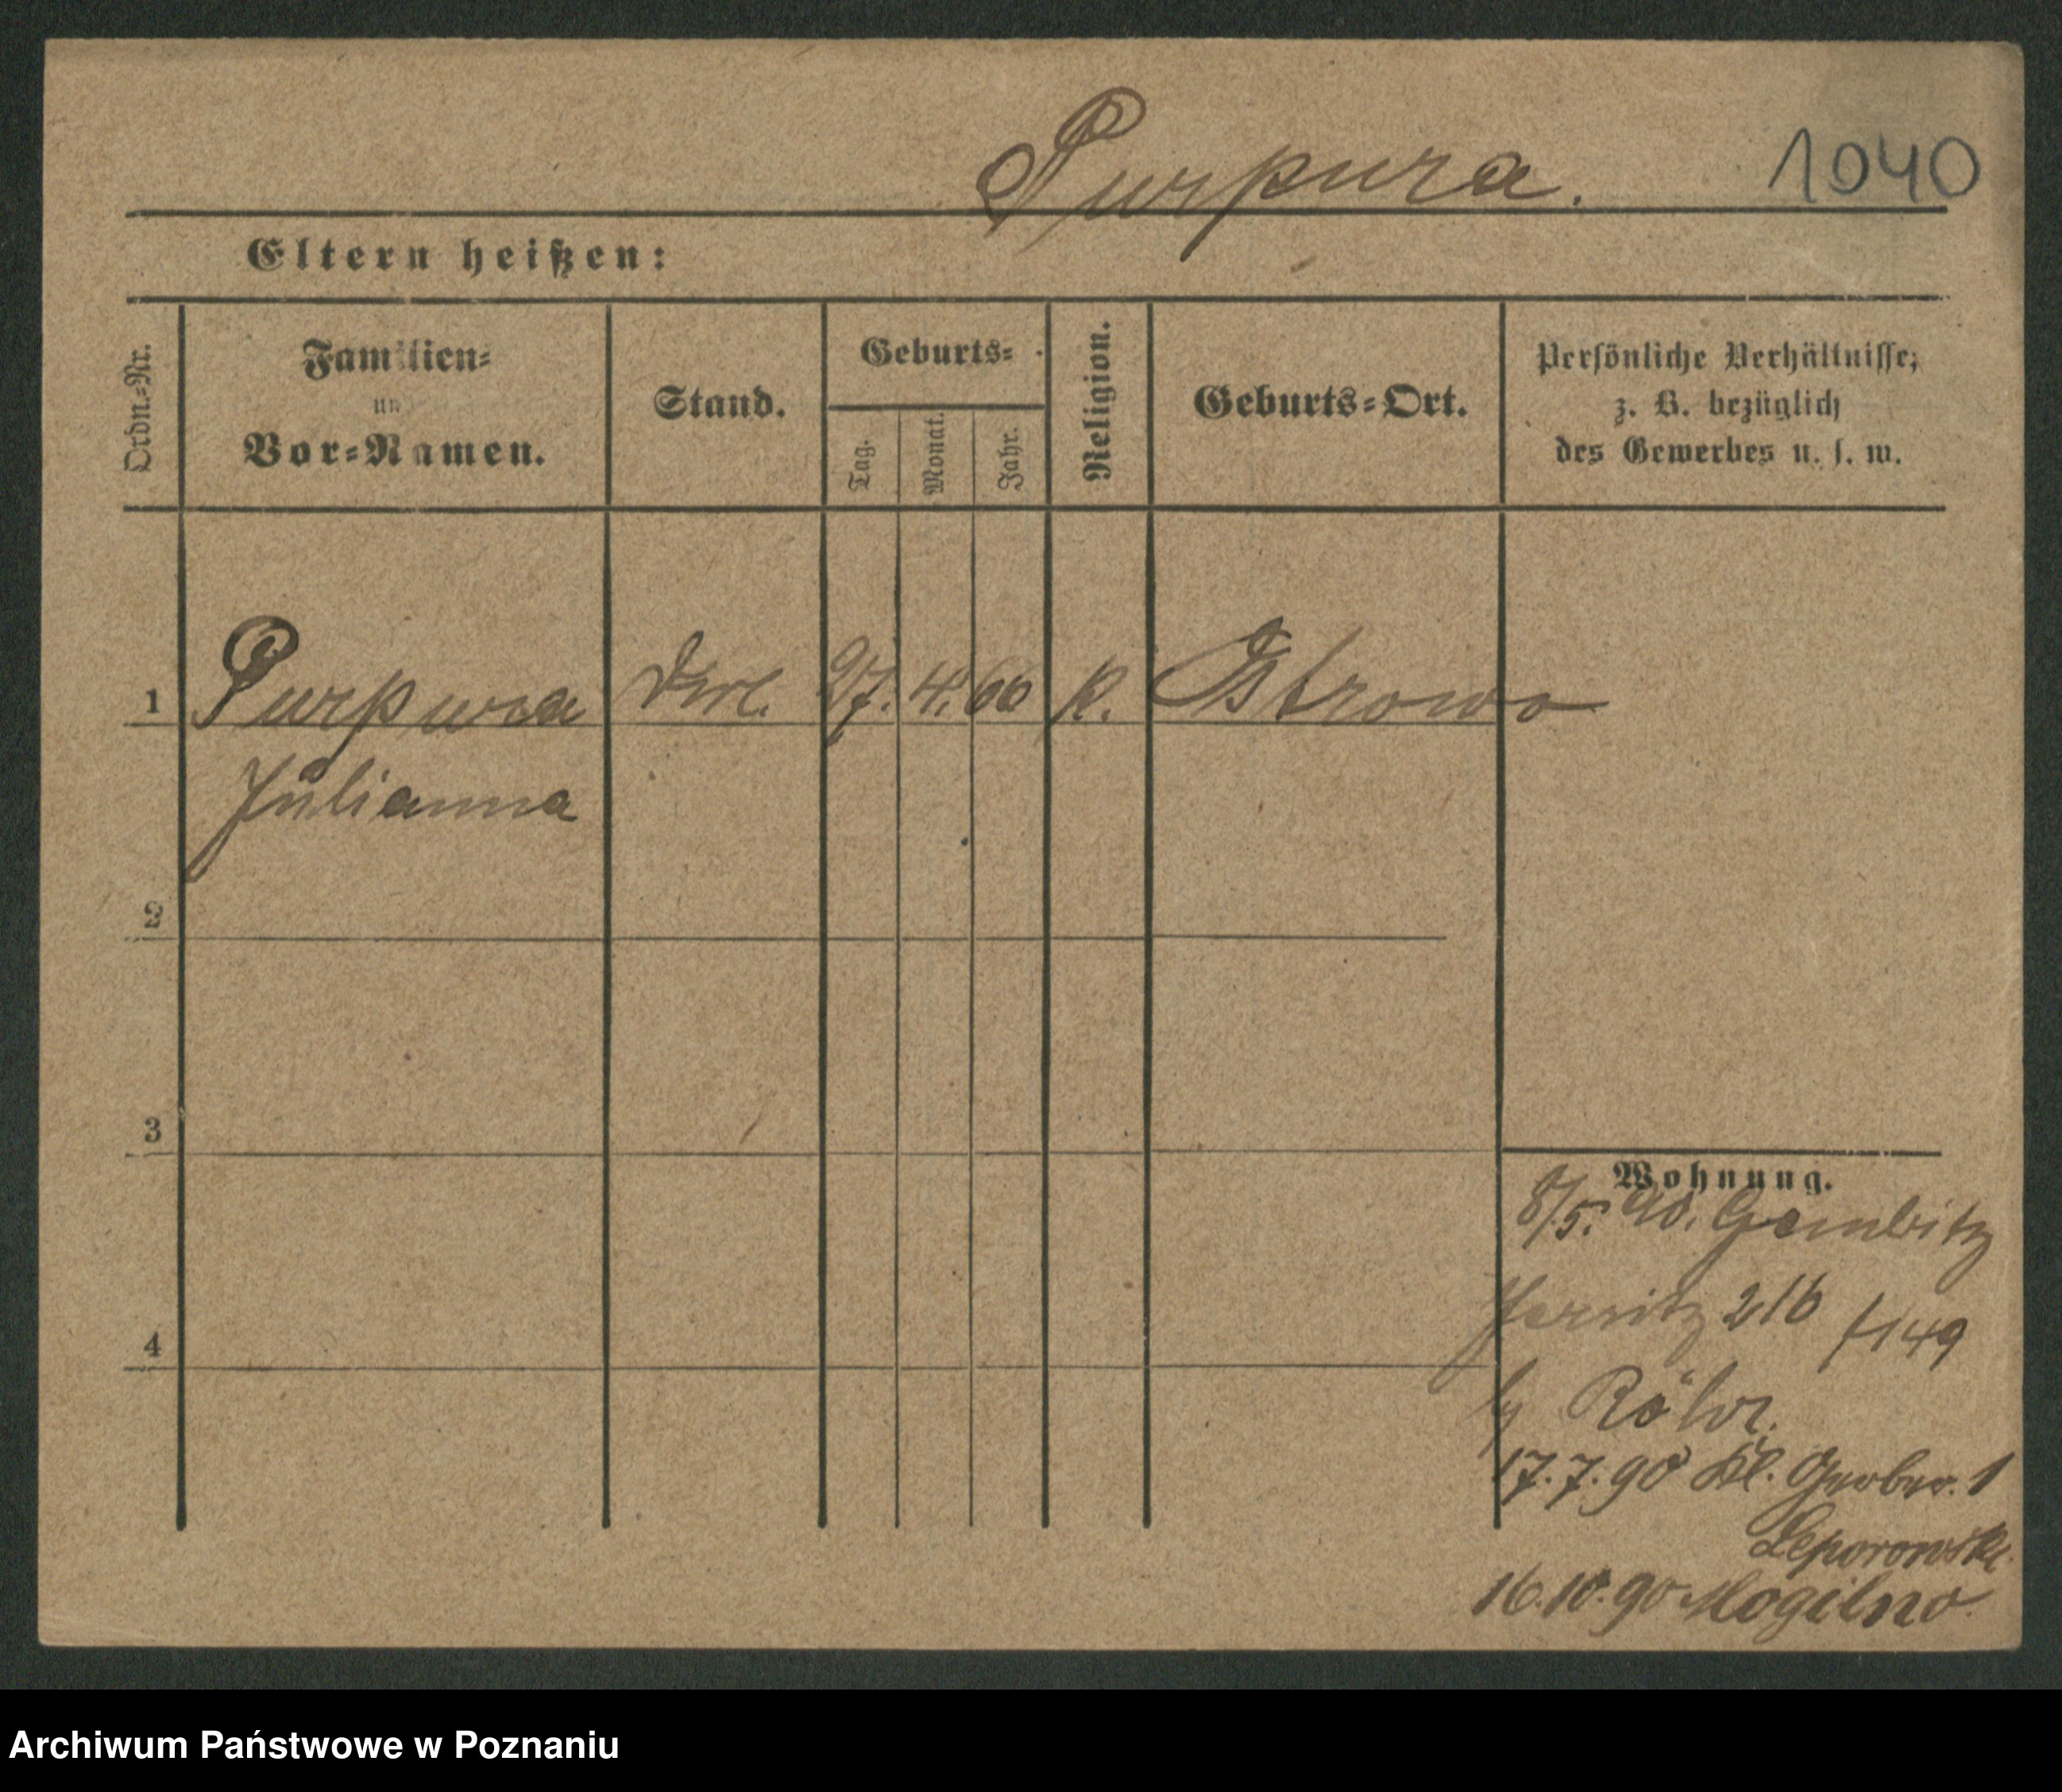 Purpura. 1040
Eltern heißen:
Ordn.=Nr.
Familien=
und
Vor=Namen.
Stand.
Geburts=
Tag.
Monat.
Jahr.
Religion.
Geburts=Ort.
Persönliche Verhältnisse,
z. B. bezüglich
des Gewerbes u. s. w.
1 Purpura 27. 4. 66 k. Ostrowo
Julianna
2
3
4
Wohnung.
8/5. 90. Gembitz
Jersitz 216
f 149
by Röhr.
17.7.90 Kl. Gerber. 1
Leporowski
16.10.90 Mogilno.
Archiwum Państwowe w Poznaniu